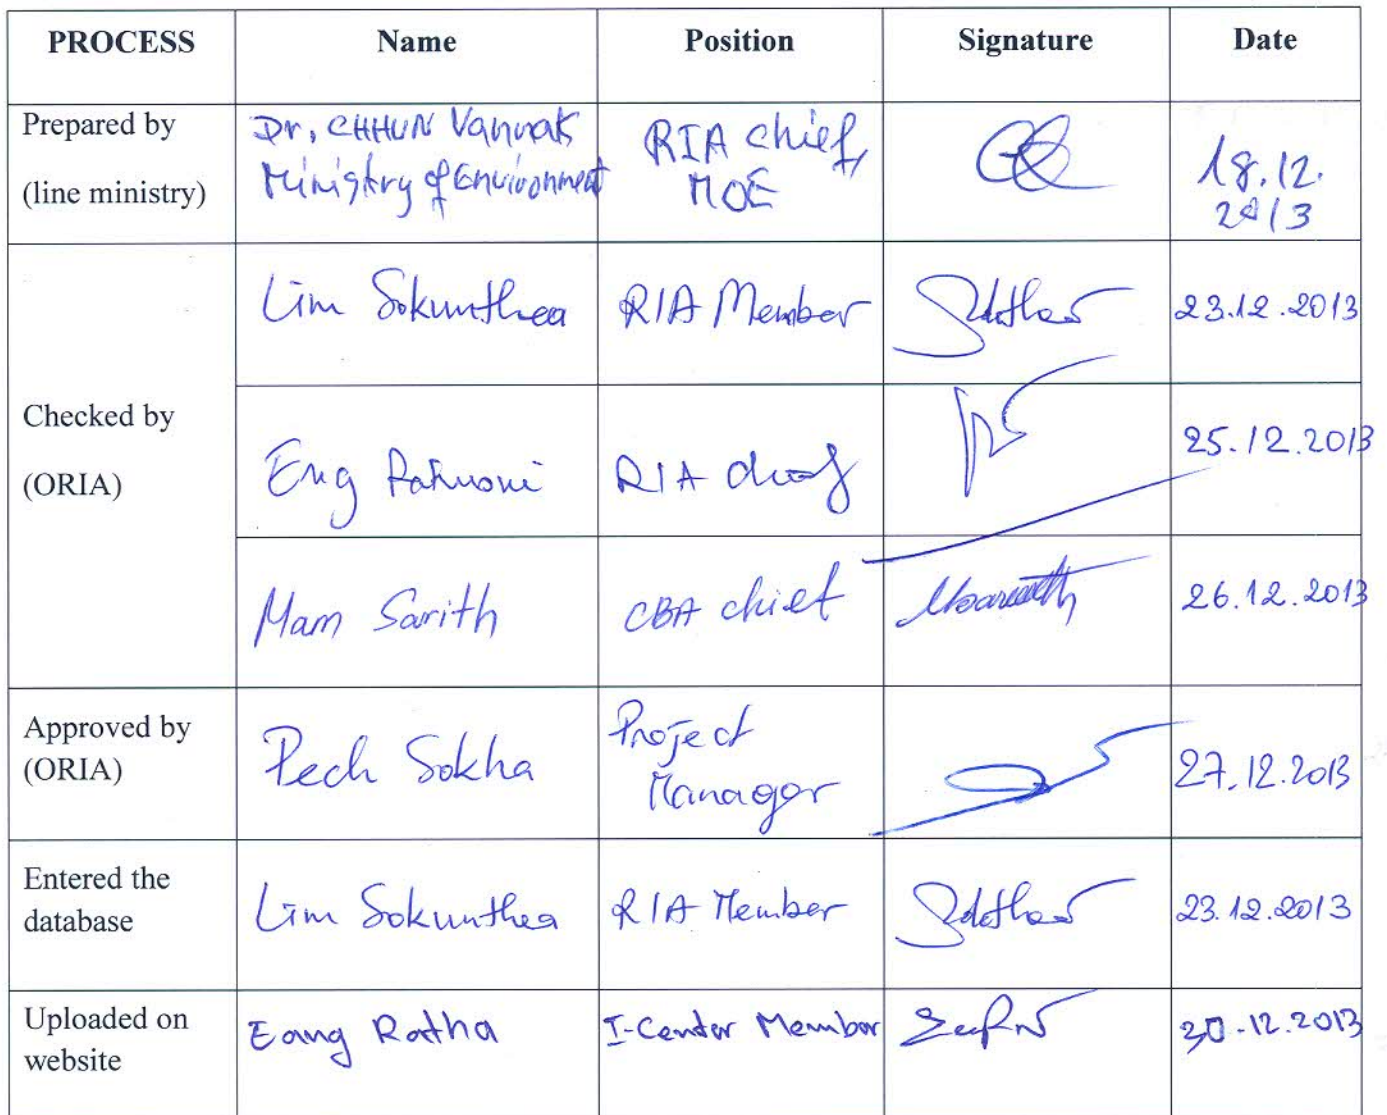 PROCESS Name Position Signature Date
Prepared by
(line ministry)
Dr, CHHUN Vannak
Ministry of Environment
RIA chief,
MOE
18.12.
2013
Checked by
(ORIA)
Lim Sokunthea RIA Member 23.12.2013
Eng RIA chief 25.12.2013
Mam Sarith CBA chief 26.12.2013
Approved by
(ORIA)
Pech Sokha
Project
Manager
27.12.2013
Entered the
database
Lim Sokunthea RIA Member 23.12.2013
Uploaded on
website
Eang Ratha I-Center Member 30.12.2013